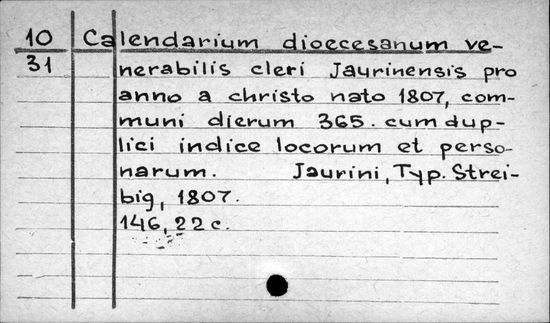 10 Calendarium dioecesanum ve-
31 nerabilis cleri Jaurinensis pro
anno a christo nato 1807, com-
muni dierum 365. cum dup-
lici indice locorum et perso-
narum. Jaurini, Typ. Strei-
big, 1807.
146, 22 c.